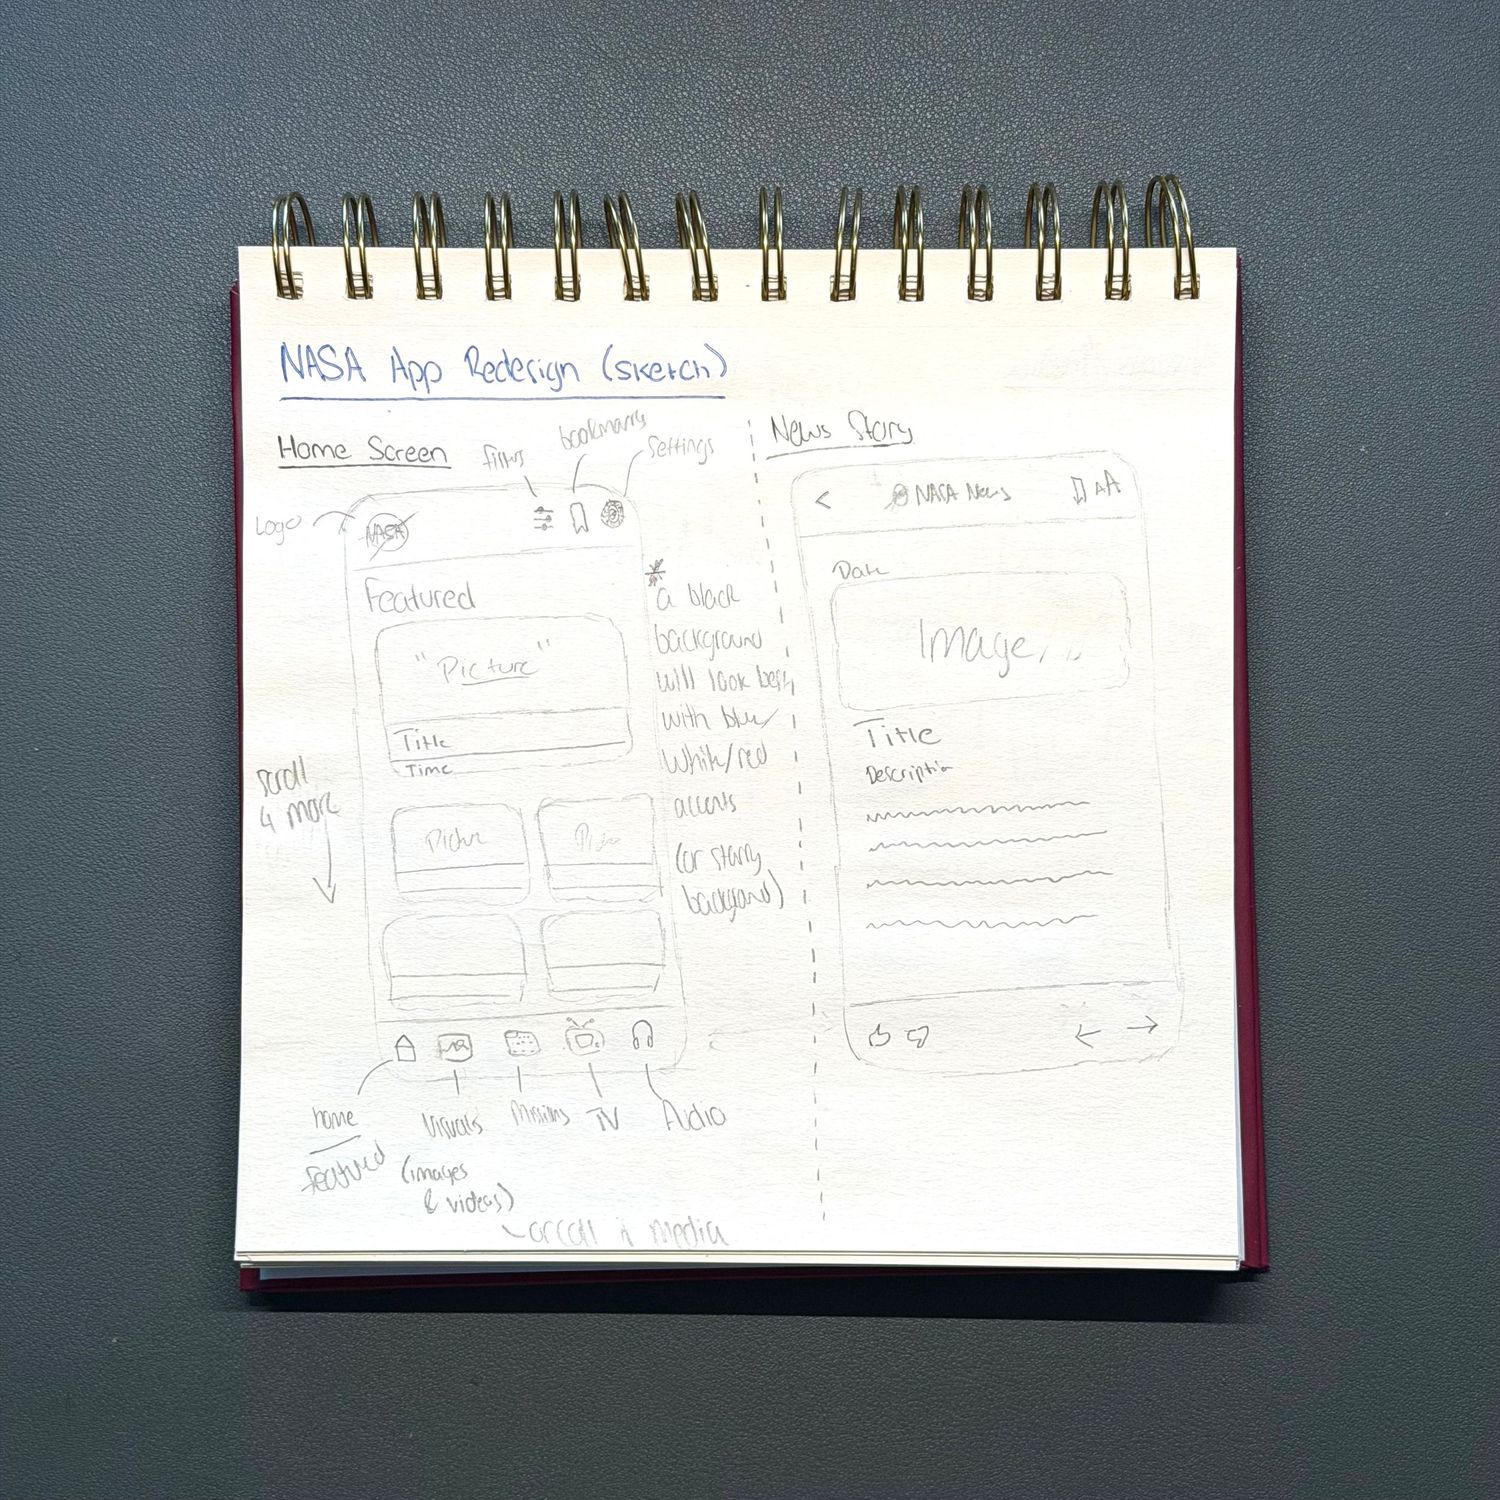 NASA App Redesign (sketch)
Home Screen
bookmarks
Settings
Logo
NASA
Featured
"Picture"
Title
Time
Scroll
4 more
Picture
*
a black
background
will look best
with blue/
white/red
accents
(or starry
background)
home
Featured
Visuals
(images
& videos)
or call it media
Missions
TV
Audio
News Story
< NASA News AA
Date
Image
Title
Description